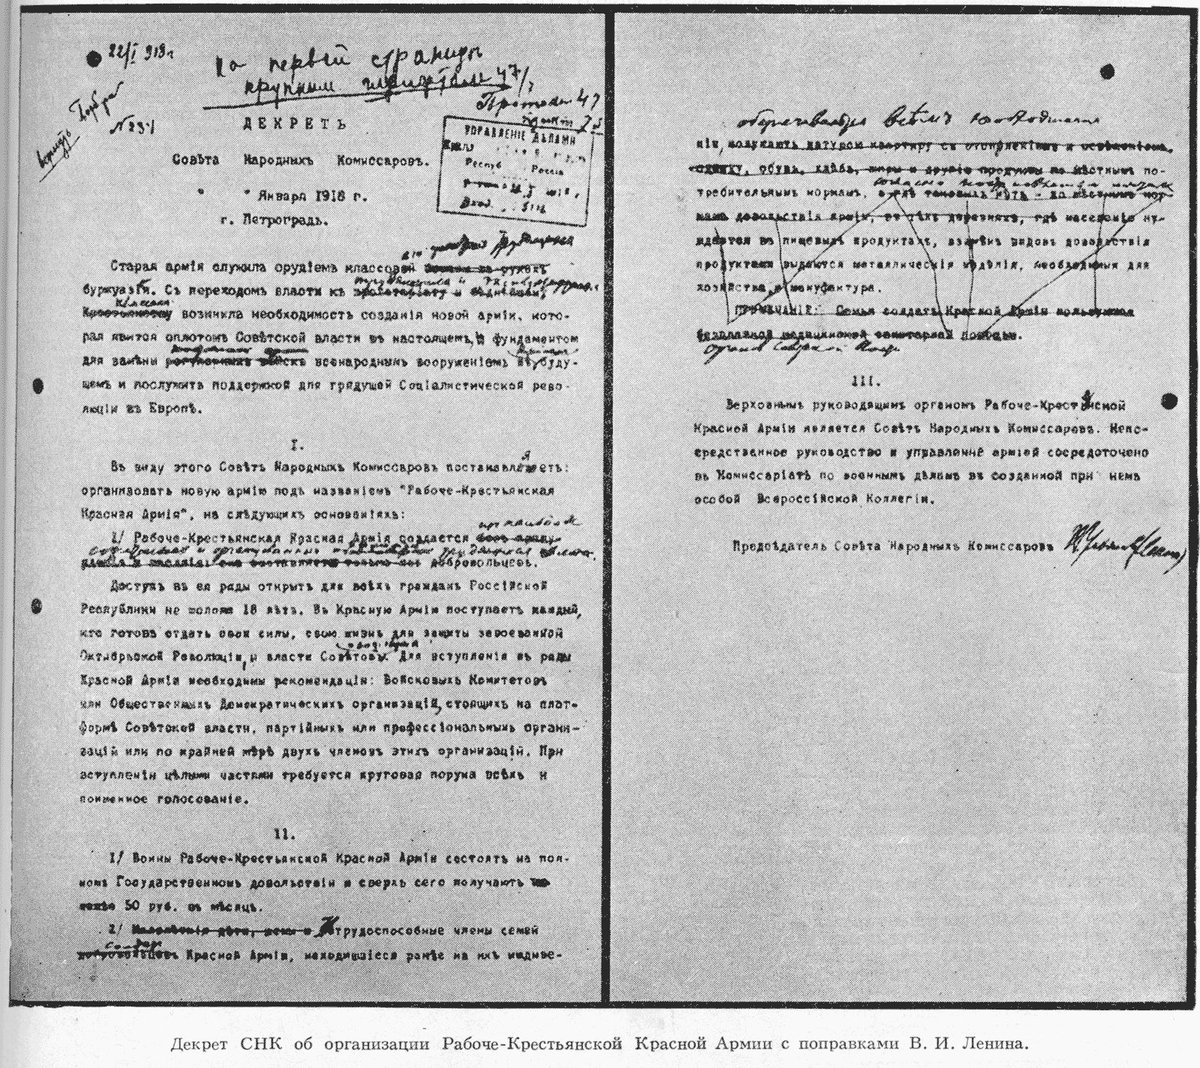 22/I 1918 г
По первой странице
крупным шрифтом 47/7
Протокол 47
пункт 7
ДЕКРЕТЪ
УПРАВЛЕНІЕ ДѢЛАМИ
Совѣта Народныхъ Комиссаровъ.
" " Января 1918 г.
г. Петроградъ.
Старая армія служила орудіемъ классовой
буржуазіи. Съ переходомъ власти къ пролетаріату и бѣднѣйшему
Крестьянству возникла необходимость созданія новой арміи, кото-
рая явится оплотомъ Совѣтской власти въ настоящемъ, фундаментом
для замѣны всенароднымъ вооруженіемъ въ буду-
щемъ и послужитъ поддержкой для грядущей Соціалистической рево-
люціи въ Европѣ.
I.
Въ виду этого Совѣтъ Народныхъ Комиссаровъ постановляетъ:
организовать новую армію подъ названіемъ "Рабоче-Крестьянская
Красная Армія", на слѣдующихъ основаніяхъ:
1/ Рабоче-Крестьянская Красная Армія создается
добровольцевъ.
Доступъ въ ея ряды открытъ для всѣхъ гражданъ Россійской
Республики не моложе 18 лѣтъ. Въ Красную Армію поступаетъ каждый,
кто готовъ отдать свои силы, свою жизнь для защиты завоеванной
Октябрьской Революціи, и власти Совѣтовъ. Для вступленія въ ряды
Красной Арміи необходимы рекомендаціи: Войсковыхъ Комитетовъ
или Общественныхъ Демократическихъ организацій, стоящихъ на плат-
формѣ Совѣтской власти, партійныхъ или профессіональныхъ органи-
зацій или по крайней мѣрѣ двухъ членовъ этихъ организацій. При
вступленіи цѣлыми частями требуется круговая порука всѣхъ и
поименное голосованіе.
11.
1/ Воины Рабоче-Крестьянской Красной Арміи состоятъ на пол-
номъ Государственномъ довольствіи и сверхъ сего получаютъ
50 руб. въ мѣсяцъ.
2/ Нетрудоспособные члены семей
солдат
добровольцевъ Красной Арміи, находившіеся ранѣе на ихъ иждиве-
обеспечиваются всѣмъ необходимым
ніи, получаютъ натурою квартиру съ отопленіемъ и освѣщеніемъ,
одежду, обувь, хлѣбъ, жиры и другіе продукты по мѣстнымъ по-
требительнымъ нормамъ, а гдѣ таковыхъ нѣтъ - по мѣстнымъ нор-
мамъ довольствія арміи, въ тѣхъ деревняхъ, гдѣ населеніе ну-
ждается въ пищевыхъ продуктахъ, взамѣнъ видовъ довольствія
продуктами выдаются металлическія издѣлія, необходимыя для
хозяйства и мануфактура.
ПРИМѢЧАНІЕ: Семьи солдатъ Красной Арміи пользуются
безплатной медицинской санитарной помощью.
III.
Верховнымъ руководящимъ органомъ Рабоче-Крестьянской
Красной Арміи является Совѣтъ Народныхъ Комиссаровъ. Непо-
средственное руководство и управленіе арміей сосредоточено
въ Комиссаріатѣ по военнымъ дѣламъ въ созданной при немъ
особой Всероссійской Коллегіи.
Предсѣдатель Совѣта Народныхъ Комиссаровъ
Декрет СНК об организации Рабоче-Крестьянской Красной Армии с поправками В. И. Ленина.